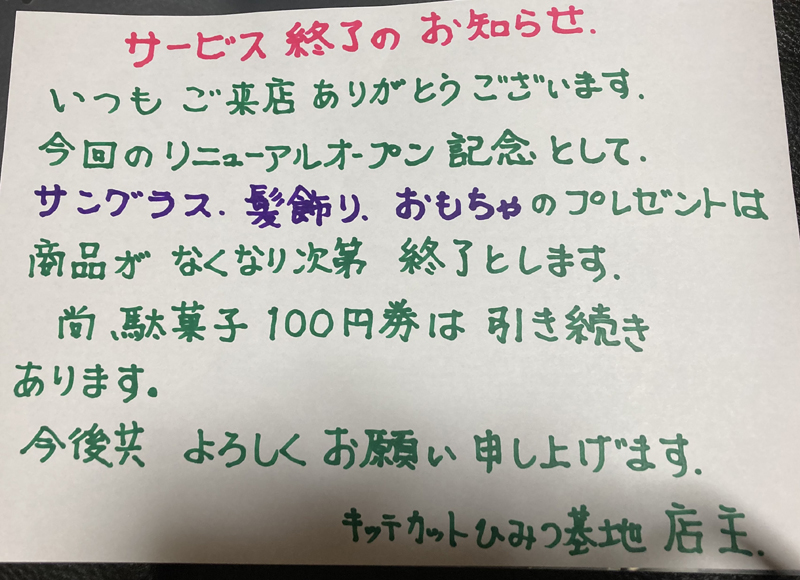 サービス終了のお知らせ.
いつもご来店ありがとうございます.
今回のリニューアルオープン記念として.
サングラス.髪飾り.おもちゃのプレゼントは
商品がなくなり次第 終了とします.
尚、駄菓子100円券は引き続き
あります。
今後共 よろしくお願い申し上げます.
キッテカットひみつ基地 店主.